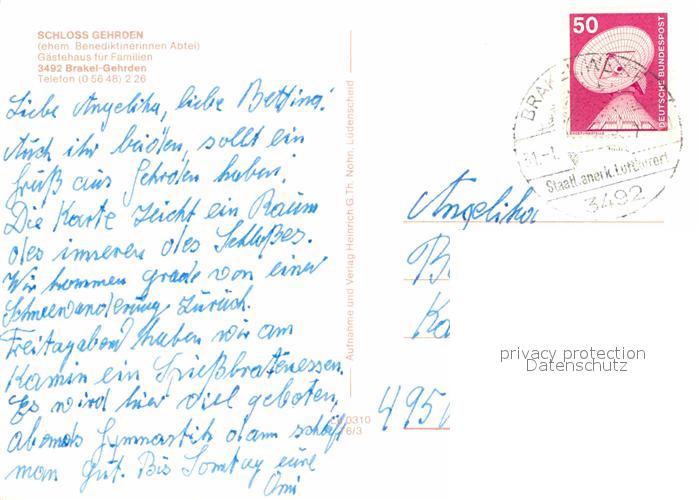 SCHLOSS GEHRDEN
(ehem. Benediktinerinnen Abtei)
Gästehaus für Familien
3492 Brakel-Gehrden
Telefon (0 56 48) 2 26
Liebe Angelika, liebe Bettina!
Auch ihr beiden, sollt ein
Gruß aus Gehrden haben.
Die Karte zeicht ein Raum
des inneren des Schloßes.
Wir kommen grade von einer
Schneewanderung zurück.
Freitagabend haben wir am
Kamin ein Spießbratenessen.
Es wird hier viel geboten,
abends Gymnastik dann schläft
man gut. Bis Sonntag eure
Omi
Aufnahme und Verlag Heinrich G. Th. Nöhr, Lüdenscheid
0310
6/3
50
DEUTSCHE BUNDESPOST
BRAKEL
Staatl. anerk. Luftkurort
3492
Angelika
B
Ka
495
privacy protection
Datenschutz